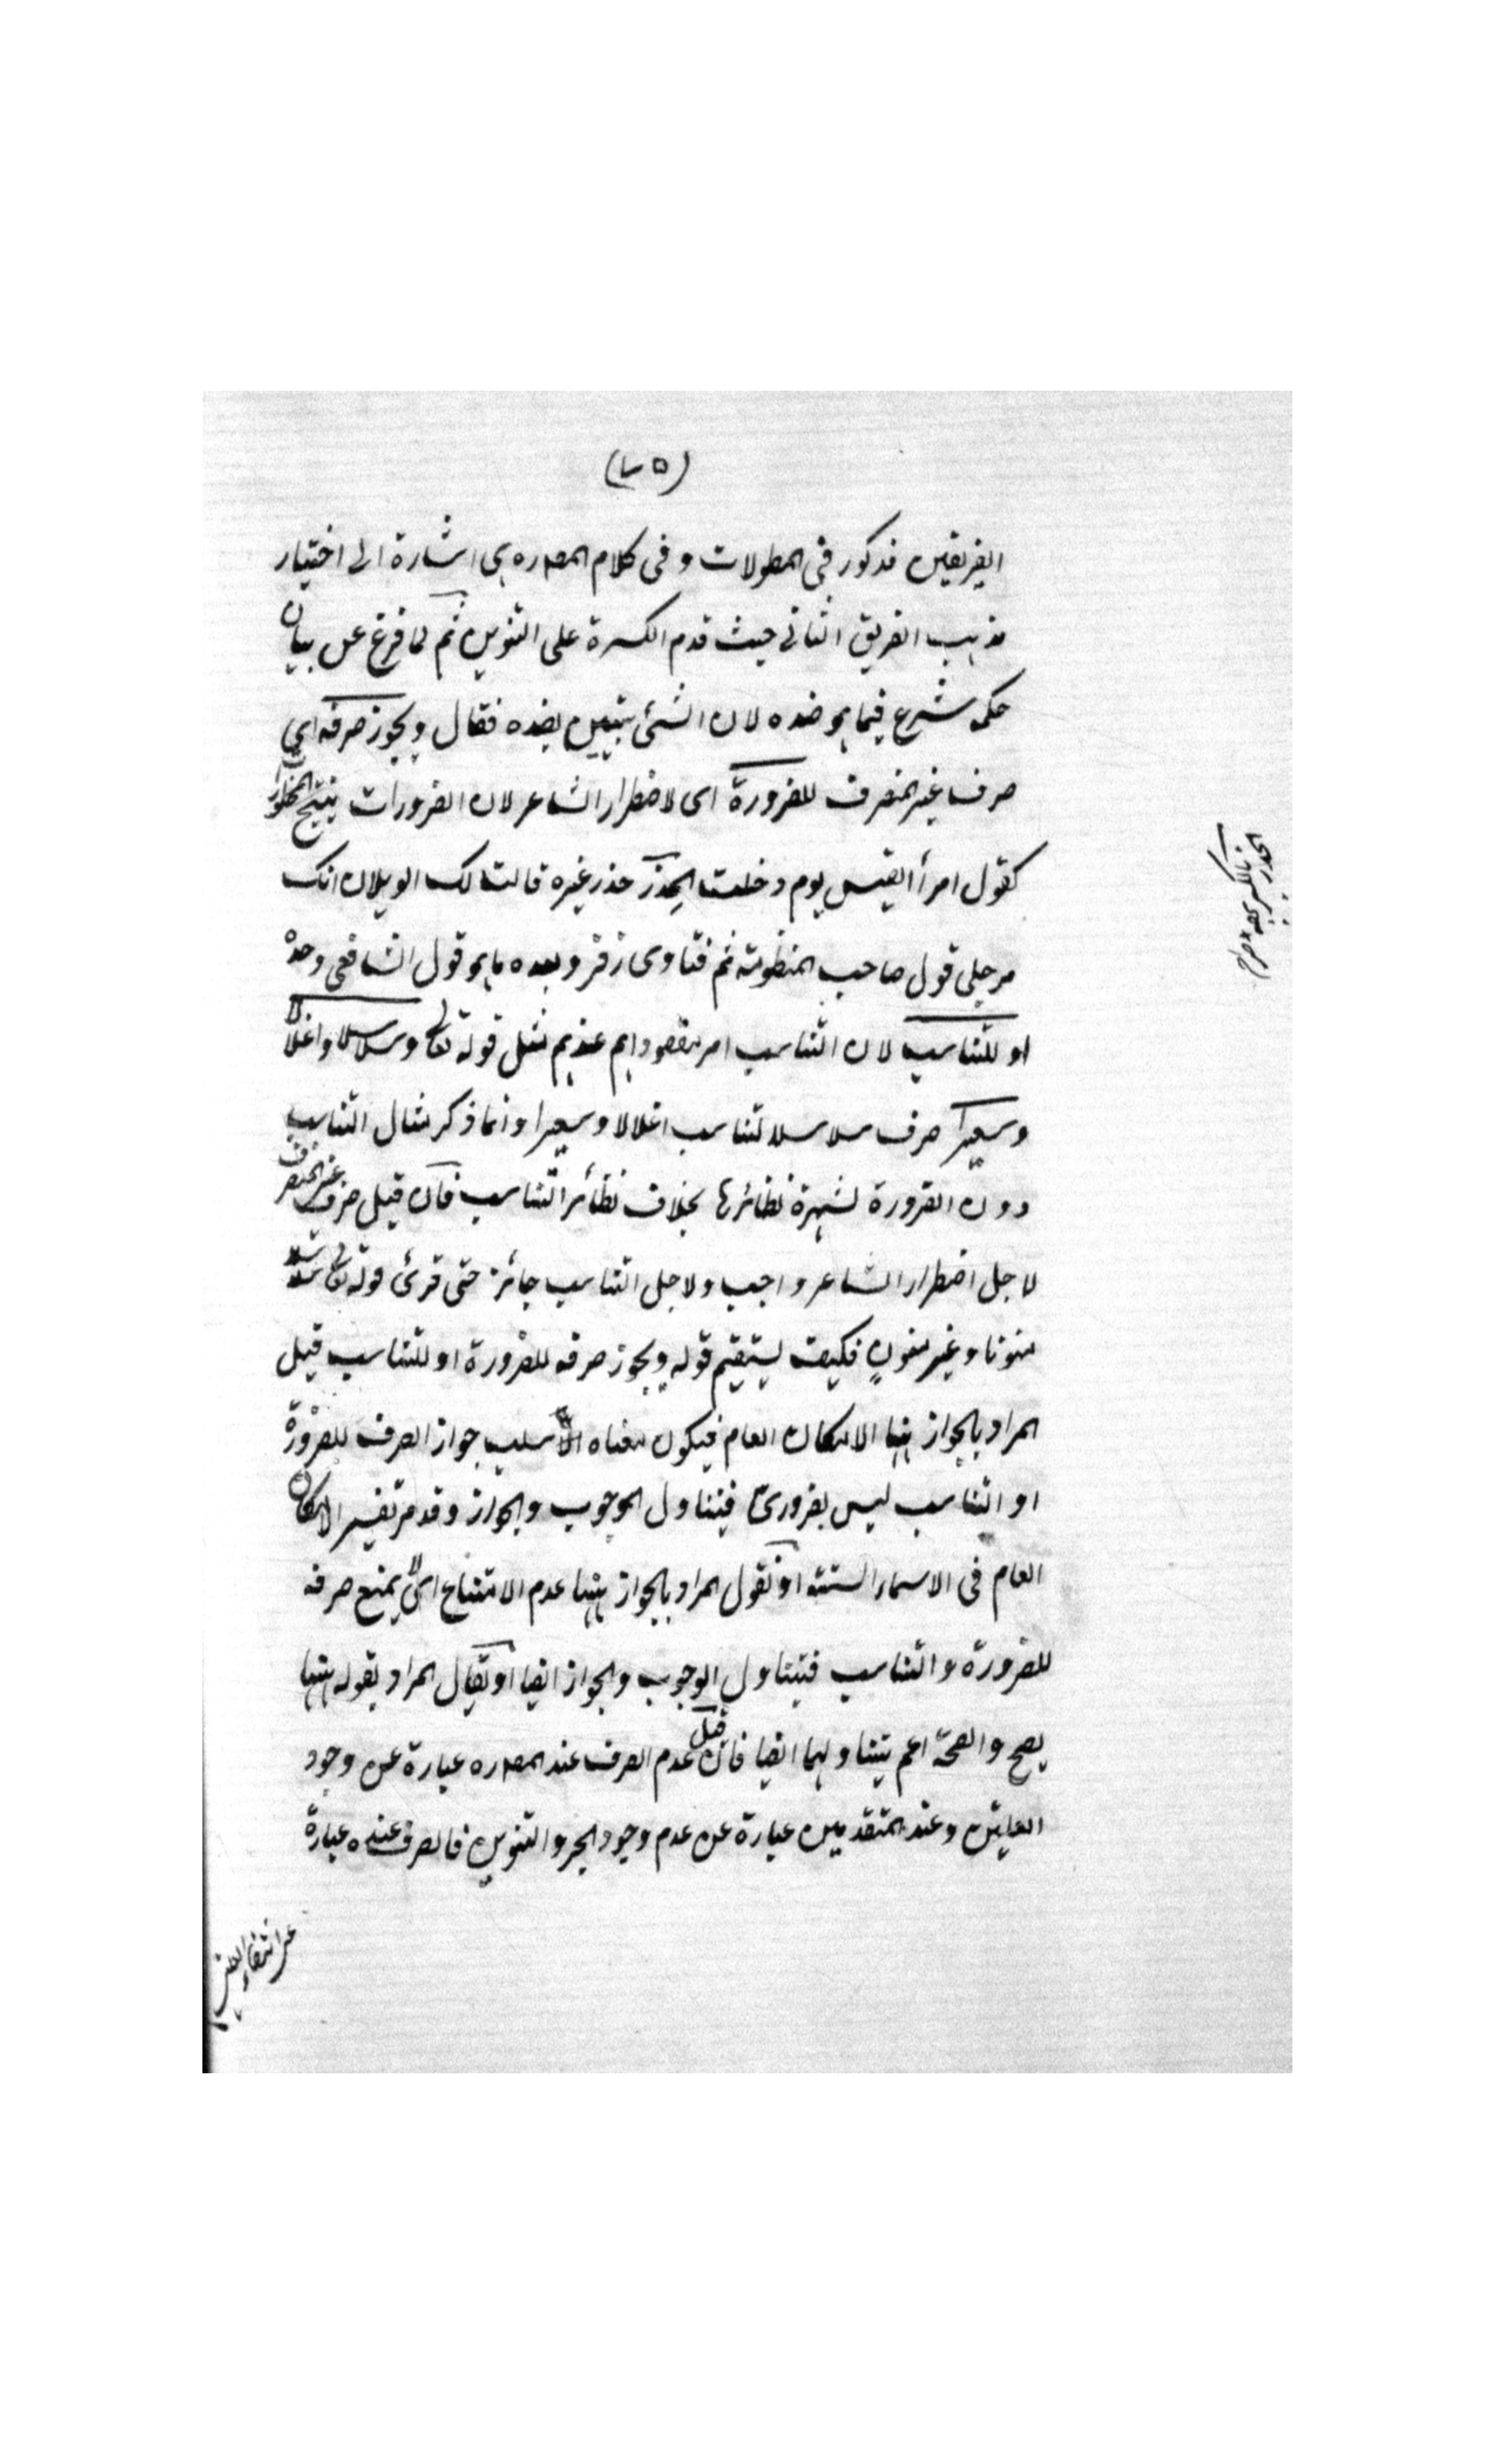 (٧٥)
الفريقين مذكور في المطولات وفى كلام المصـ ره اشارة الى اختيار
مذهب الفريق الثاني حيث قدم الكسرة على التنوين ثم لما فرغ عن بيان
حكمه شرع فيما هو ضده لان الشئ يتبين بضده فقال ويجوز صرفه اي
صرف غير المنصرف للضرورة اى لاضطرار الشاعر لان الضرورات تبيح المحظورات
كقول امرأ القيس يوم دخلت الخدر خدر عنيزة قالت لك الويلات انك
مرجلى قول صاحب المنظومة ثم فتاوى زفر وبعده ما هو قول الشافعي وحده
او للتناسب لان التناسب امر مقصود اهم عندهم مثل قوله تعالى وسلاسلا واغلالا
وسعيرا صرف سلاسلا لتناسب اغلالا وسعيرا وانما ذكر مثال التناسب
دون الضرورة لشهرة نظائرها بخلاف نظائر التناسب فان قيل صرف غير المنصرف
لاجل اضطرار الشاعر واجب ولاجل التناسب جائز حتى قرئ قوله تعالى سلاسلا
منونا وغير منون فكيف يستقيم قوله ويجوز صرفه للضرورة او للتناسب قيل
المراد بالجواز ههنا الامكان العام فيكون معناه ان سلب جواز الصرف للضرورة
او التناسب ليس بضرورى فيتناول الوجوب والجواز وقد مر تفسير الامكان
العام فى الاسماء الستة او نقول المراد بالجواز ههنا عدم الامتناع اى لا يمتنع صرفه
للضرورة والتناسب فيتناول الوجوب والجواز ايضا او يقال المراد بقوله ههنا
يصح والصحة اعم يتناولهما ايضا فان قيل عدم الصرف عند المصـ ره عبارة عن وجود
العلتين وعند المتقدمين عبارة عن عدم وجود الجر والتنوين فالصرف عنده عبارة
عن انتفاء العلتين